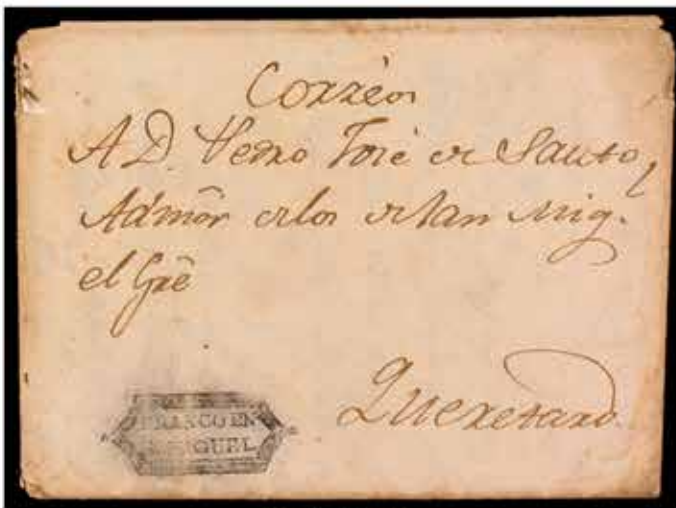 Corrèos
A D. Pedro José de Sauto,
Admôr delos de San Mig.
el Grê
Queretaro.
FRANCO EN
S. MIGUEL